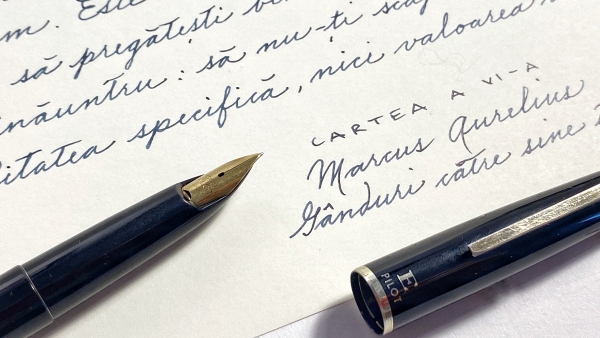 m. Este
să pregătești
înăuntru: să nu-ți
litatea specifică, nici valoarea
CARTEA A VI-A
Marcus Aurelius
Gânduri către sine
E
PILOT